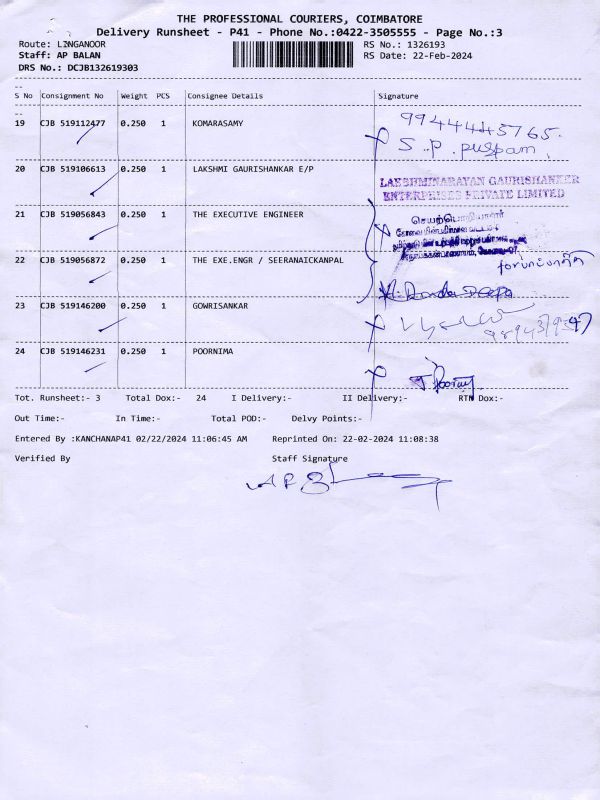 THE PROFESSIONAL COURIERS, COIMBATORE
Delivery Runsheet - P41 - Phone No.:0422-3505555 - Page No.:3
Route: LINGANOOR RS No.: 1326193
Staff: AP BALAN RS Date: 22-Feb-2024
DRS No.: DCJB132619303
S No Consignment No Weight PCS Consignee Details Signature
19 CJB 519112477 0.250 1 KOMARASAMY 9944445765.
S.P. puspam
20 CJB 519106613 0.250 1 LAKSHMI GAURISHANKAR E/P
LAKSHMINARAYAN GAURISHANKER
ENTERPRISES PRIVATE LIMITED
21 CJB 519056843 0.250 1 THE EXECUTIVE ENGINEER செயற்பொறியாளர்
22 CJB 519056872 0.250 1 THE EXE.ENGR / SEERANAICKANPAL
23 CJB 519146200 0.250 1 GOWRISANKAR
24 CJB 519146231 0.250 1 POORNIMA
Tot. Runsheet:- 3 Total Dox:- 24 I Delivery:- II Delivery:- RTN Dox:-
Out Time:- In Time:- Total POD:- Delvy Points:-
Entered By :KANCHANAP41 02/22/2024 11:06:45 AM Reprinted On: 22-02-2024 11:08:38
Verified By Staff Signature